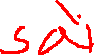 sài